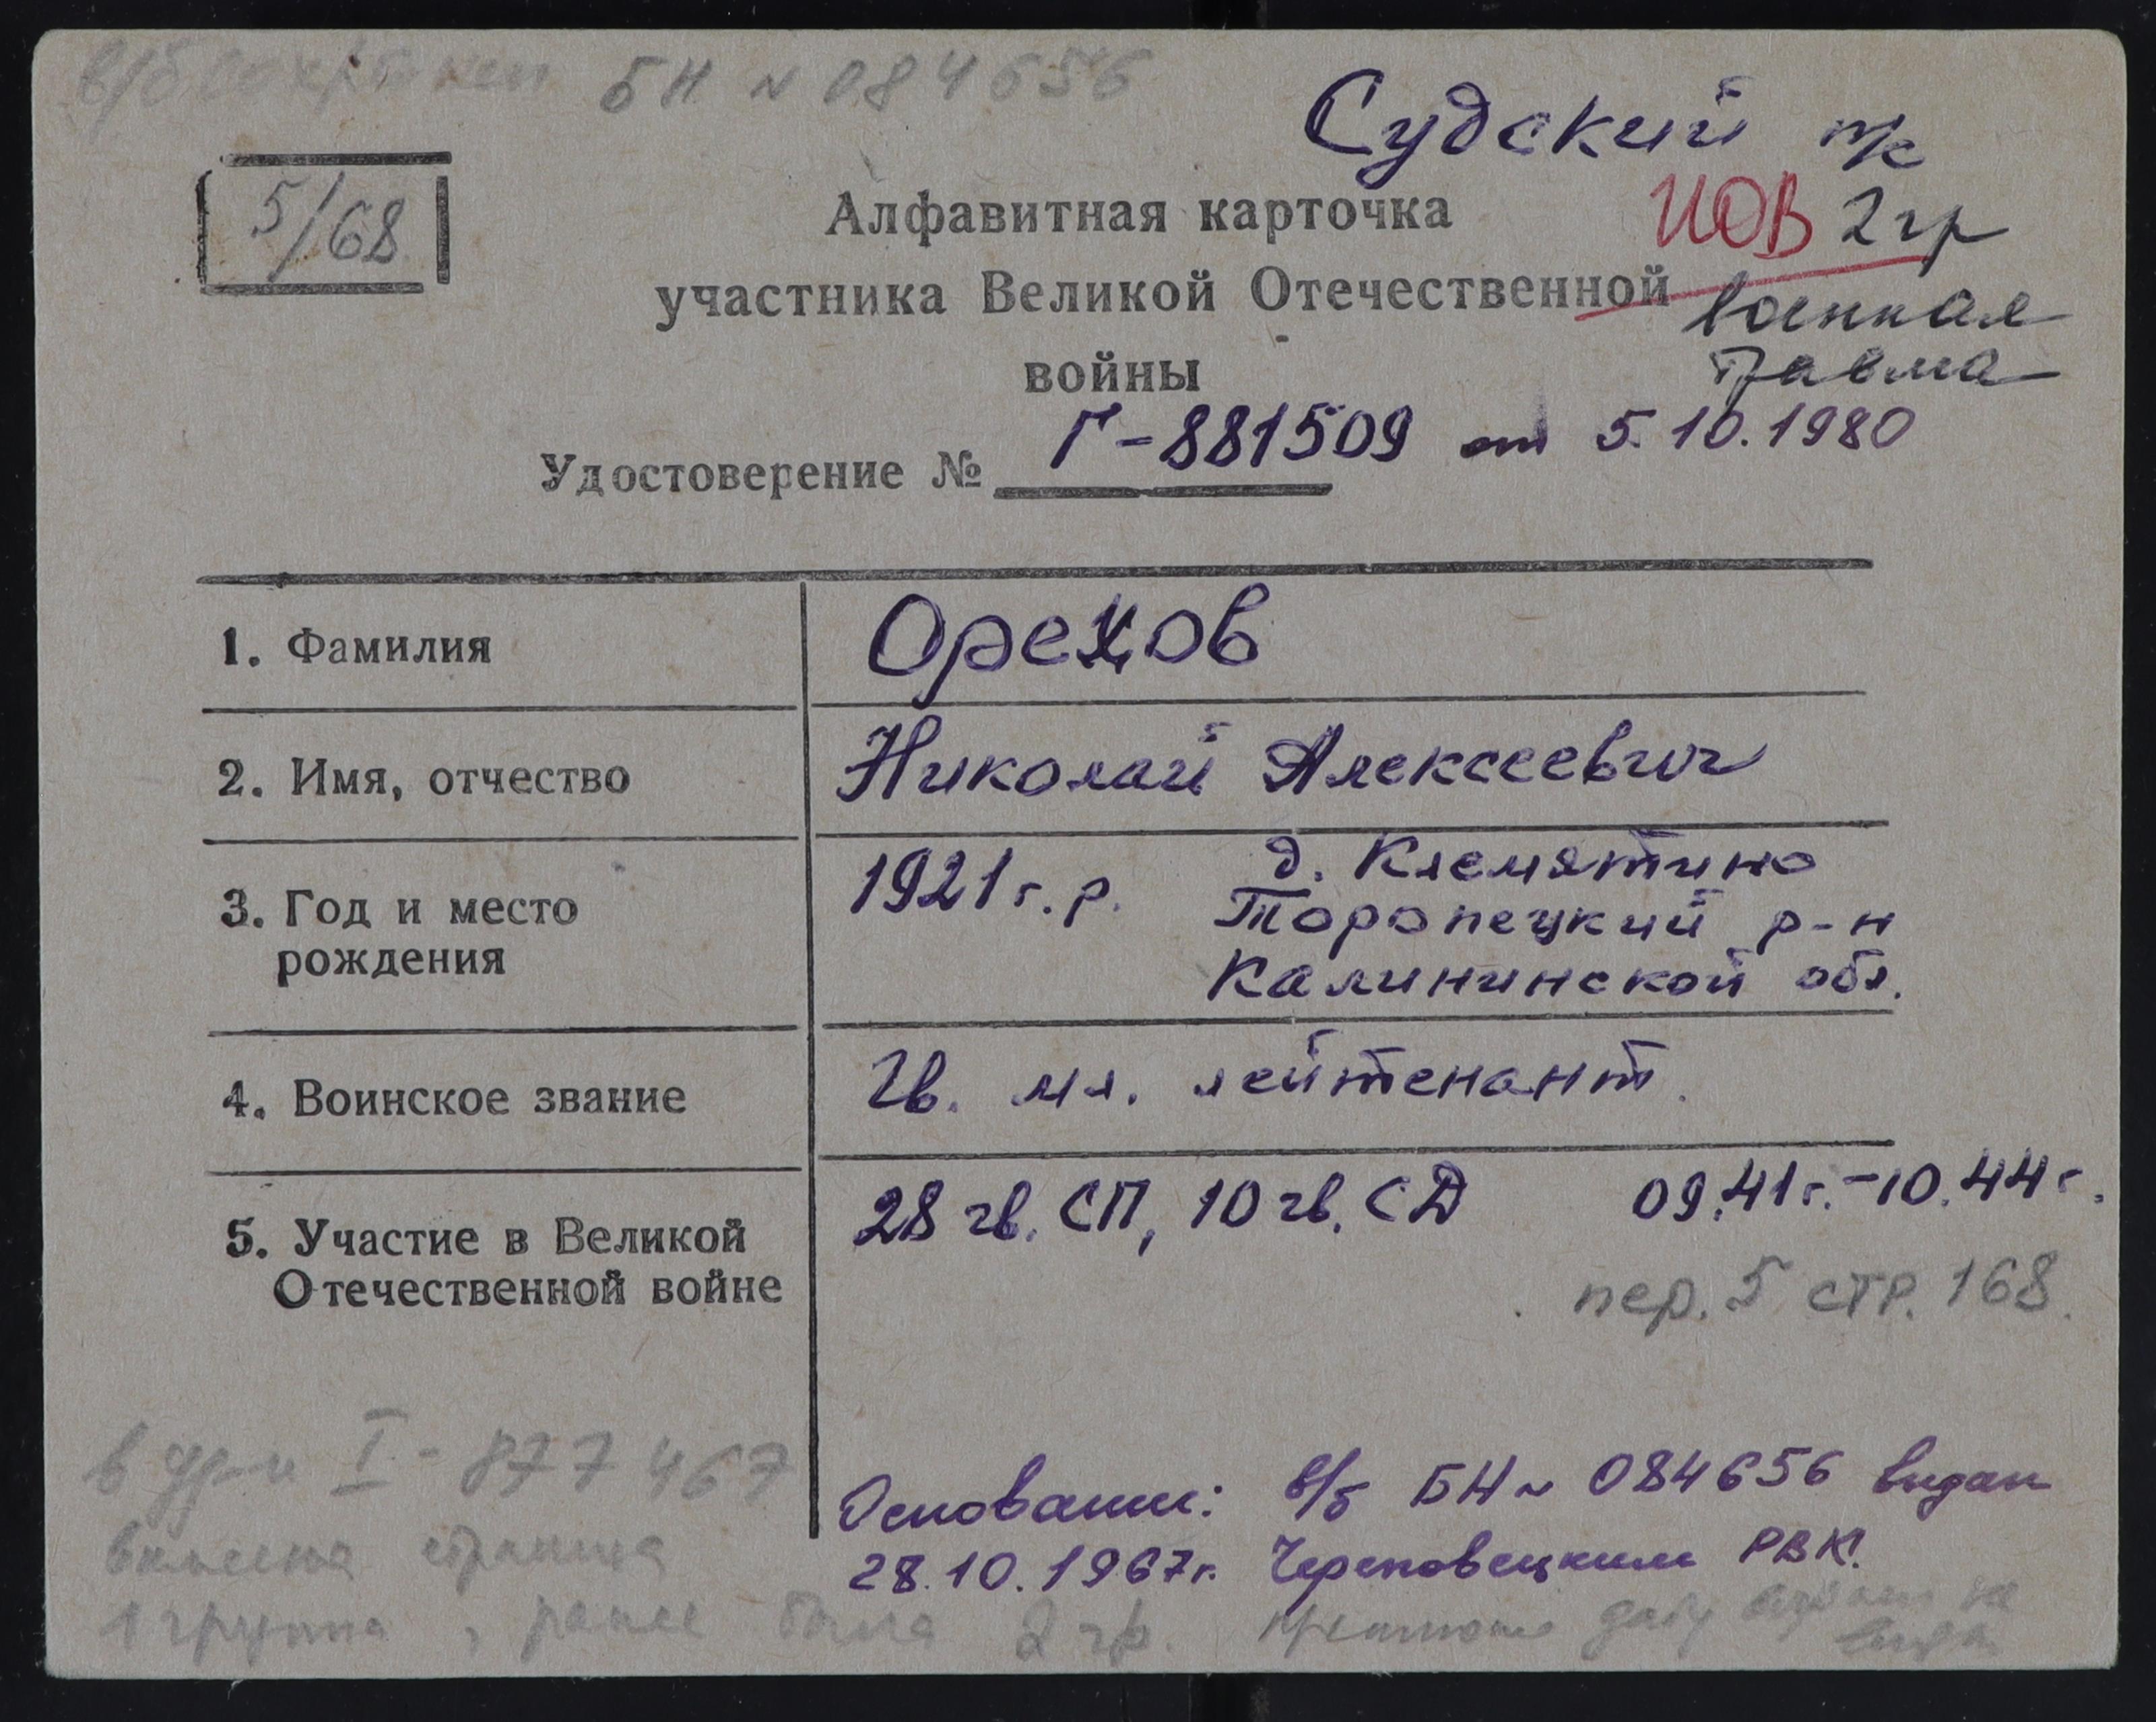 БН № 084656
Судский т/с
5/68
Алфавитная карточка
ИОВ 2 гр
участника Великой Отечественной
военная
травма
войны
Удостоверение № Г-881509 от 5.10.1980
1. Фамилия
Орехов
2. Имя, отчество
Николай Алексеевич
3. Год и место
рождения
1921 г.р. д. Клемятино
Торопецкий р-н
Калининской обл.
4. Воинское звание
Гв. мл. лейтенант.
5. Участие в Великой
Отечественной войне
28 гв. СП, 10 гв. СД 09.41г.-10.44г.
пер. 5 стр. 168.
в уд-и I - 877467
вклеена страница
1 группа, ранее была 2 гр.
Основание: в/б БН № 084656 выдан
28.10.1967г. Череповецким РВК.